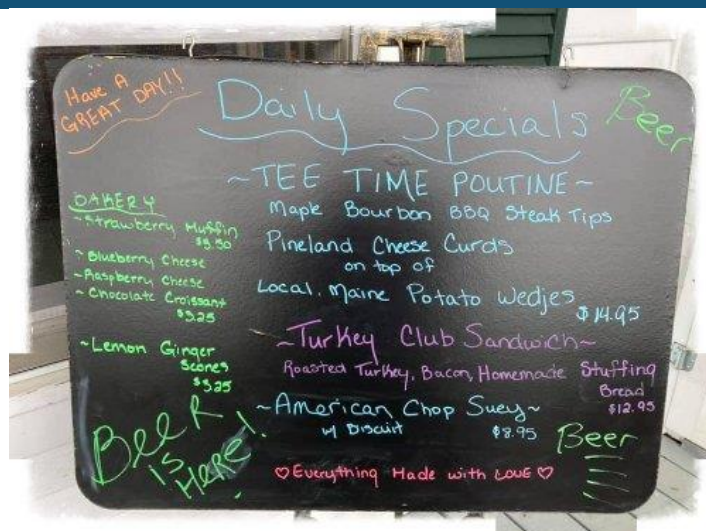 Have A
GREAT DAY!!
Daily Specials
Beer
~TEE TIME POUTINE~
Maple Bourbon BBQ Steak Tips
Pineland Cheese Curds
on top of
Local, Maine Potato Wedjes
$14.95
~Turkey Club Sandwich~
Roasted Turkey, Bacon, Homemade Stuffing
Bread
$12.95
~American Chop Suey~
w/ Biscuit $8.95
♡Everything Made with LOVE♡
BAKERY
~Strawberry Muffin
$3.50
~Blueberry Cheese
~Raspberry Cheese
~Chocolate Croissant
$3.25
~Lemon Ginger
Scones
$3.25
BEER
IS
HERE!
Beer